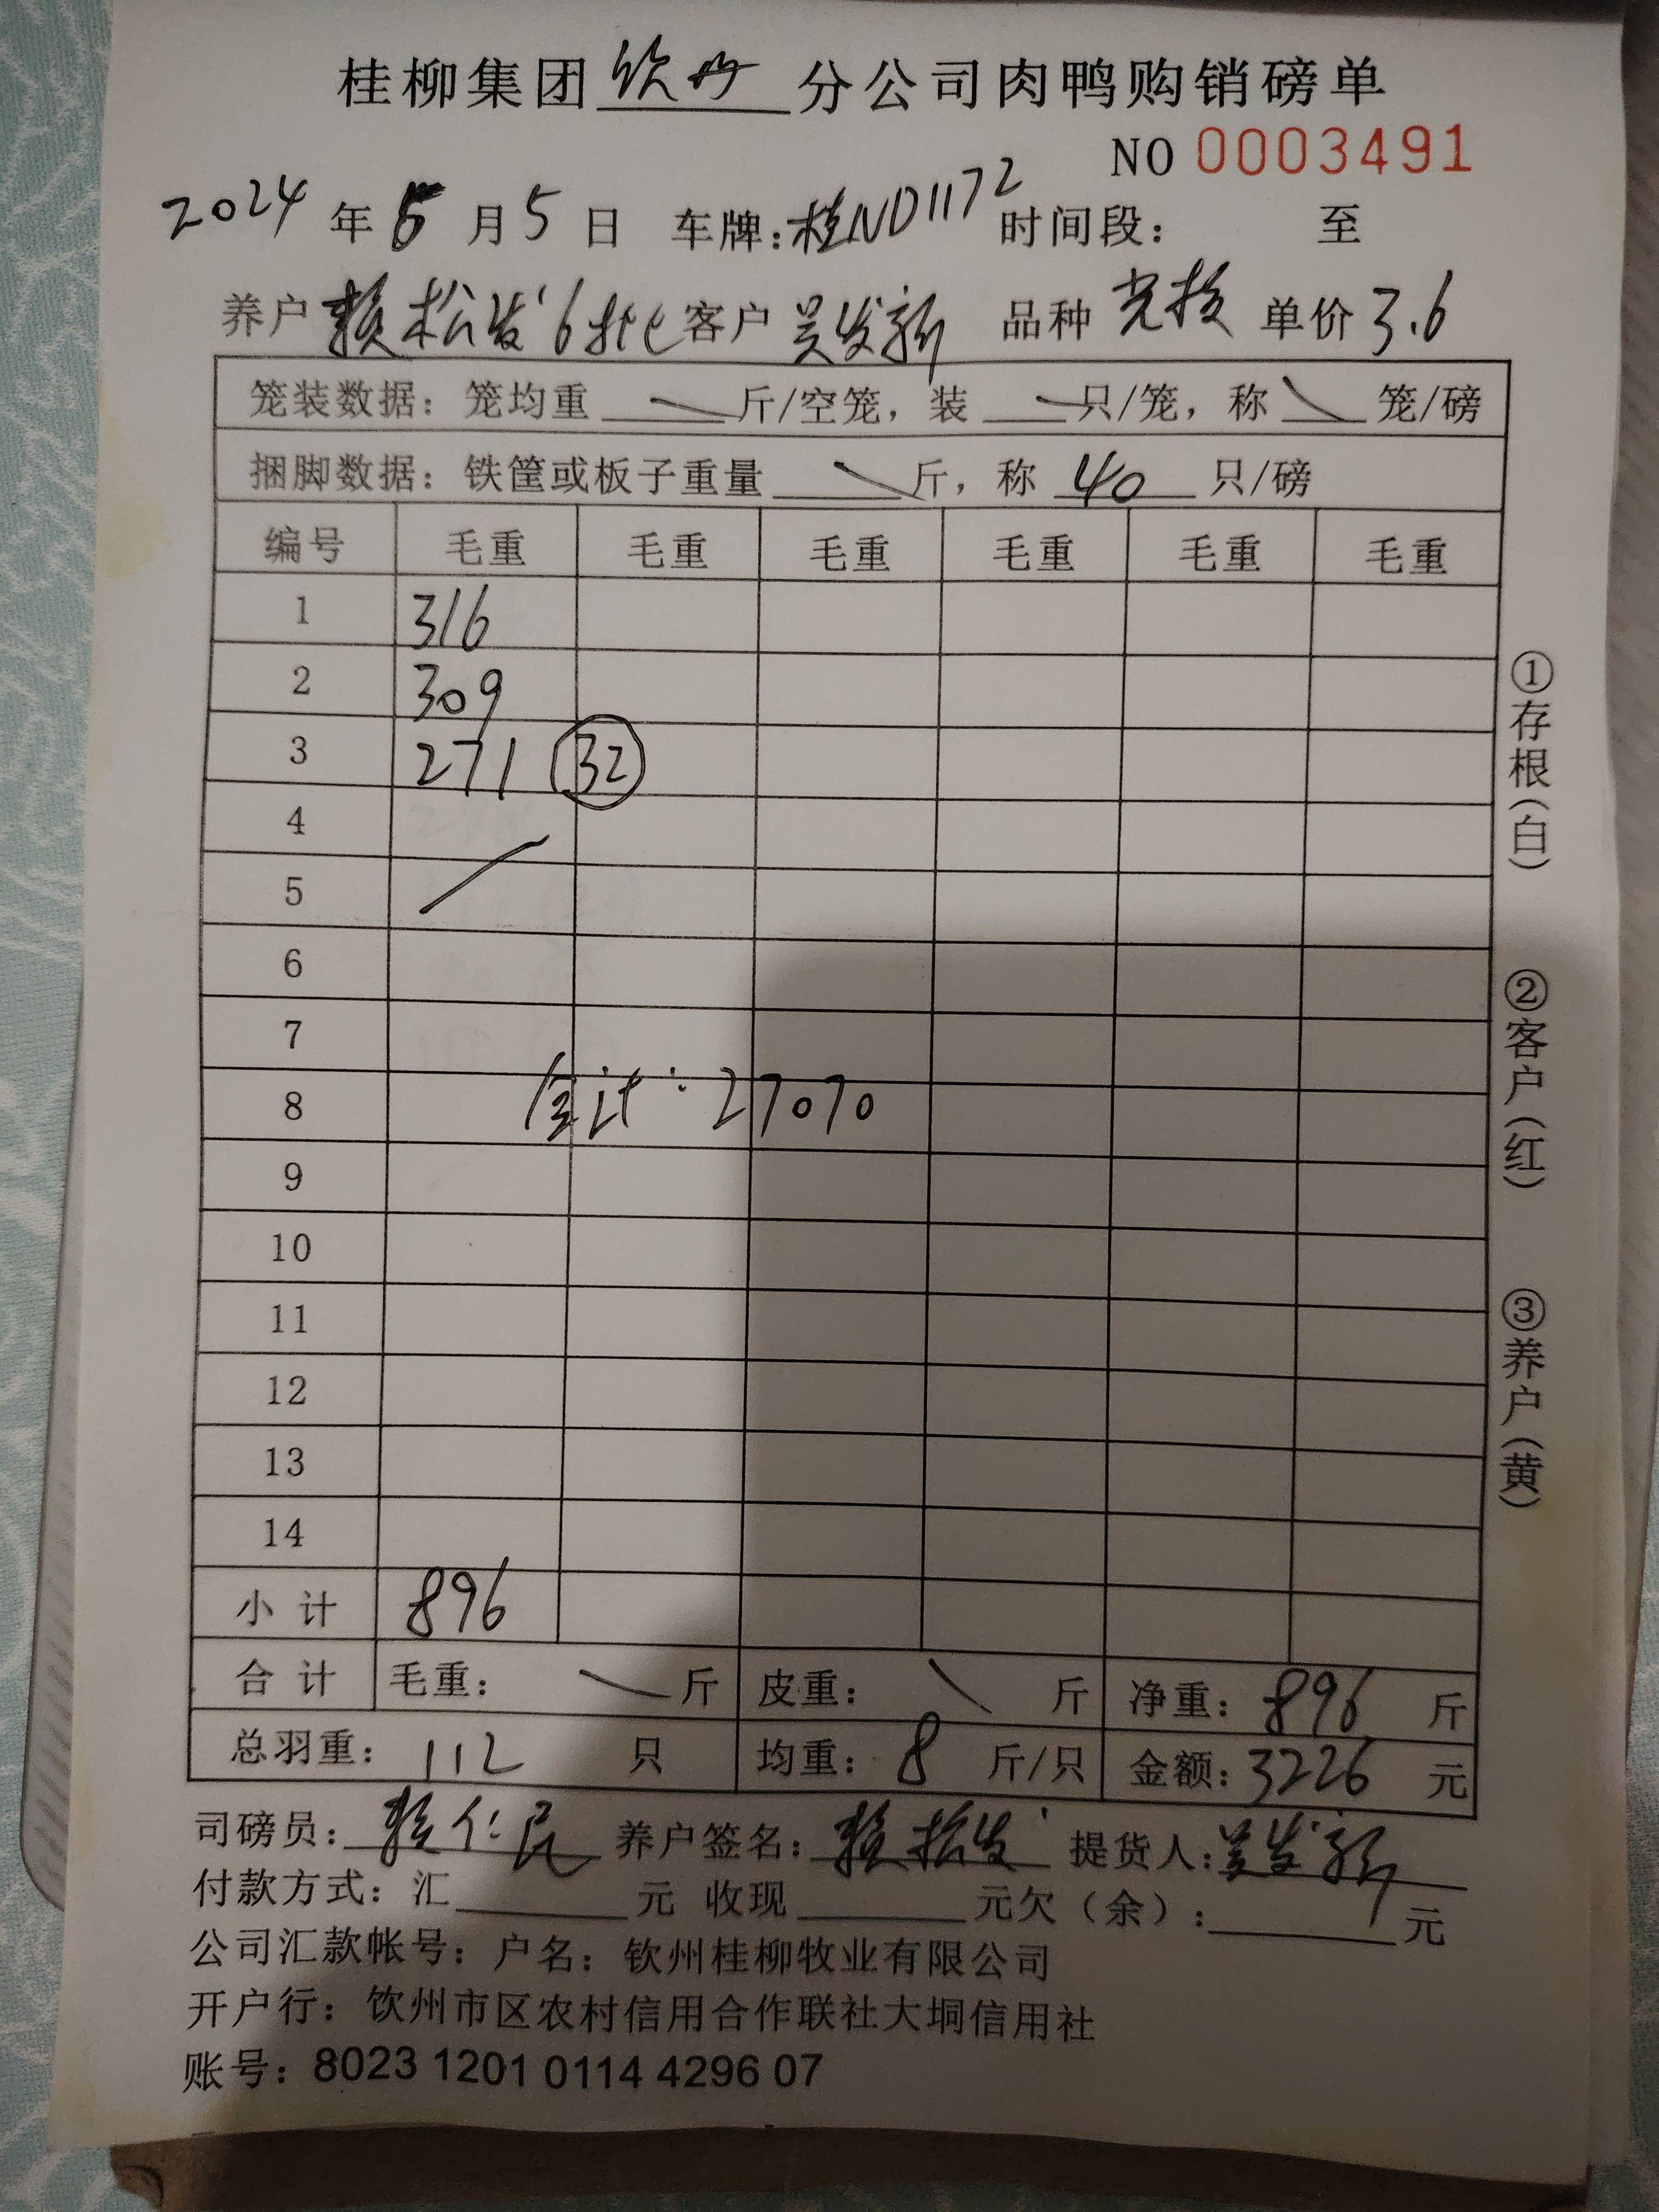 桂柳集团钦州分公司肉鸭购销磅单
NO 0003491
2024年5月5日 车牌:桂ND1172 时间段: 至
养户 赖松发 16批 客户 吴发新 品种 单价 3.6
笼装数据: 笼均重 斤/空笼, 装 只/笼, 称 笼/磅
捆脚数据: 铁筐或板子重量 斤, 称 40 只/磅
编号 毛重 毛重 毛重 毛重 毛重 毛重
1 316
2 309
3 271 32
4
5
6
7
8 合计: 27070
9
10
11
12
13
14
小计 896
合计 毛重: 斤 皮重: 斤 净重: 896 斤
总羽重: 112 只 均重: 8 斤/只 金额: 3226 元
司磅员: 赖仁民 养户签名: 赖松发 提货人: 吴发新
付款方式: 汇 元 收现 元欠(余): 元
公司汇款帐号: 户名: 钦州桂柳牧业有限公司
开户行: 饮州市区农村信用合作联社大垌信用社
账号: 8023 1201 0114 4296 07
①存根(白)
②客户(红)
③养户(黄)